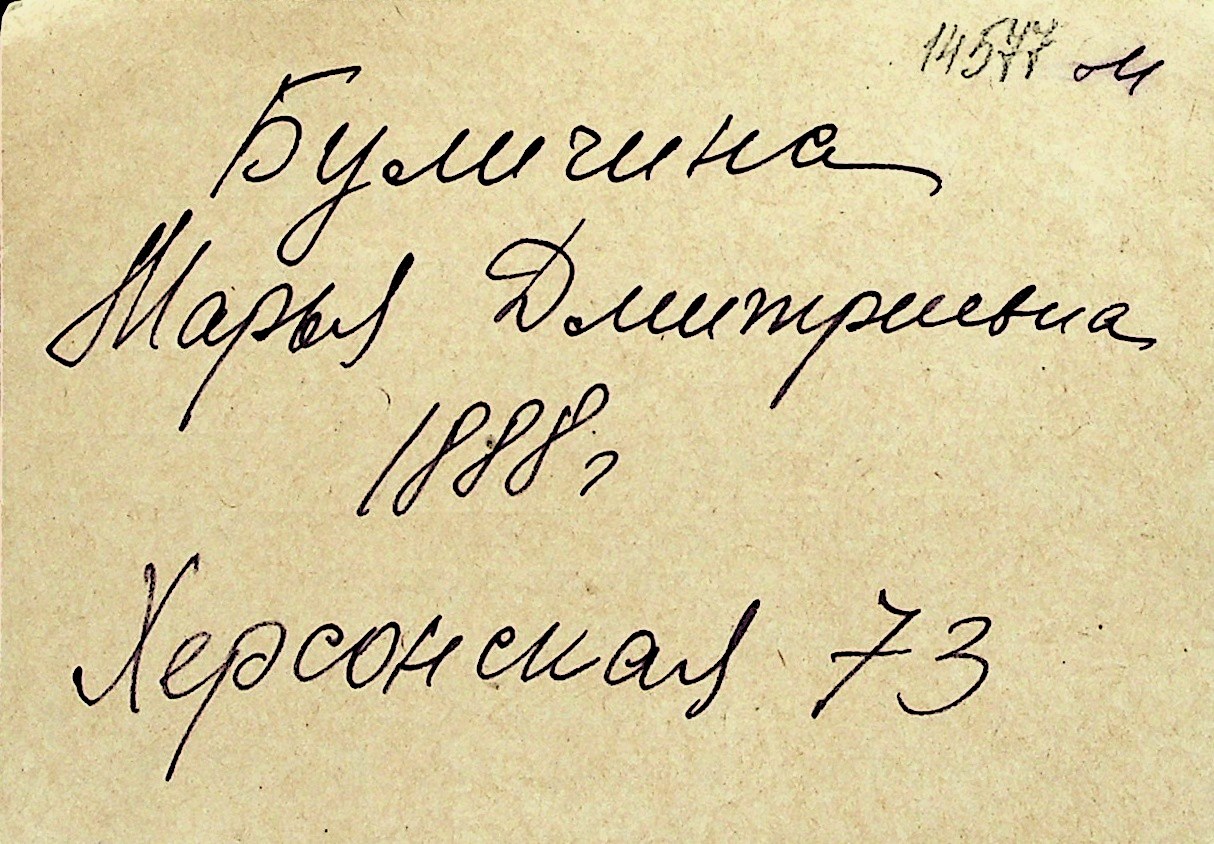 14577 м
Буличина
Марья Дмитриевна
1888 г
Херсонская 73